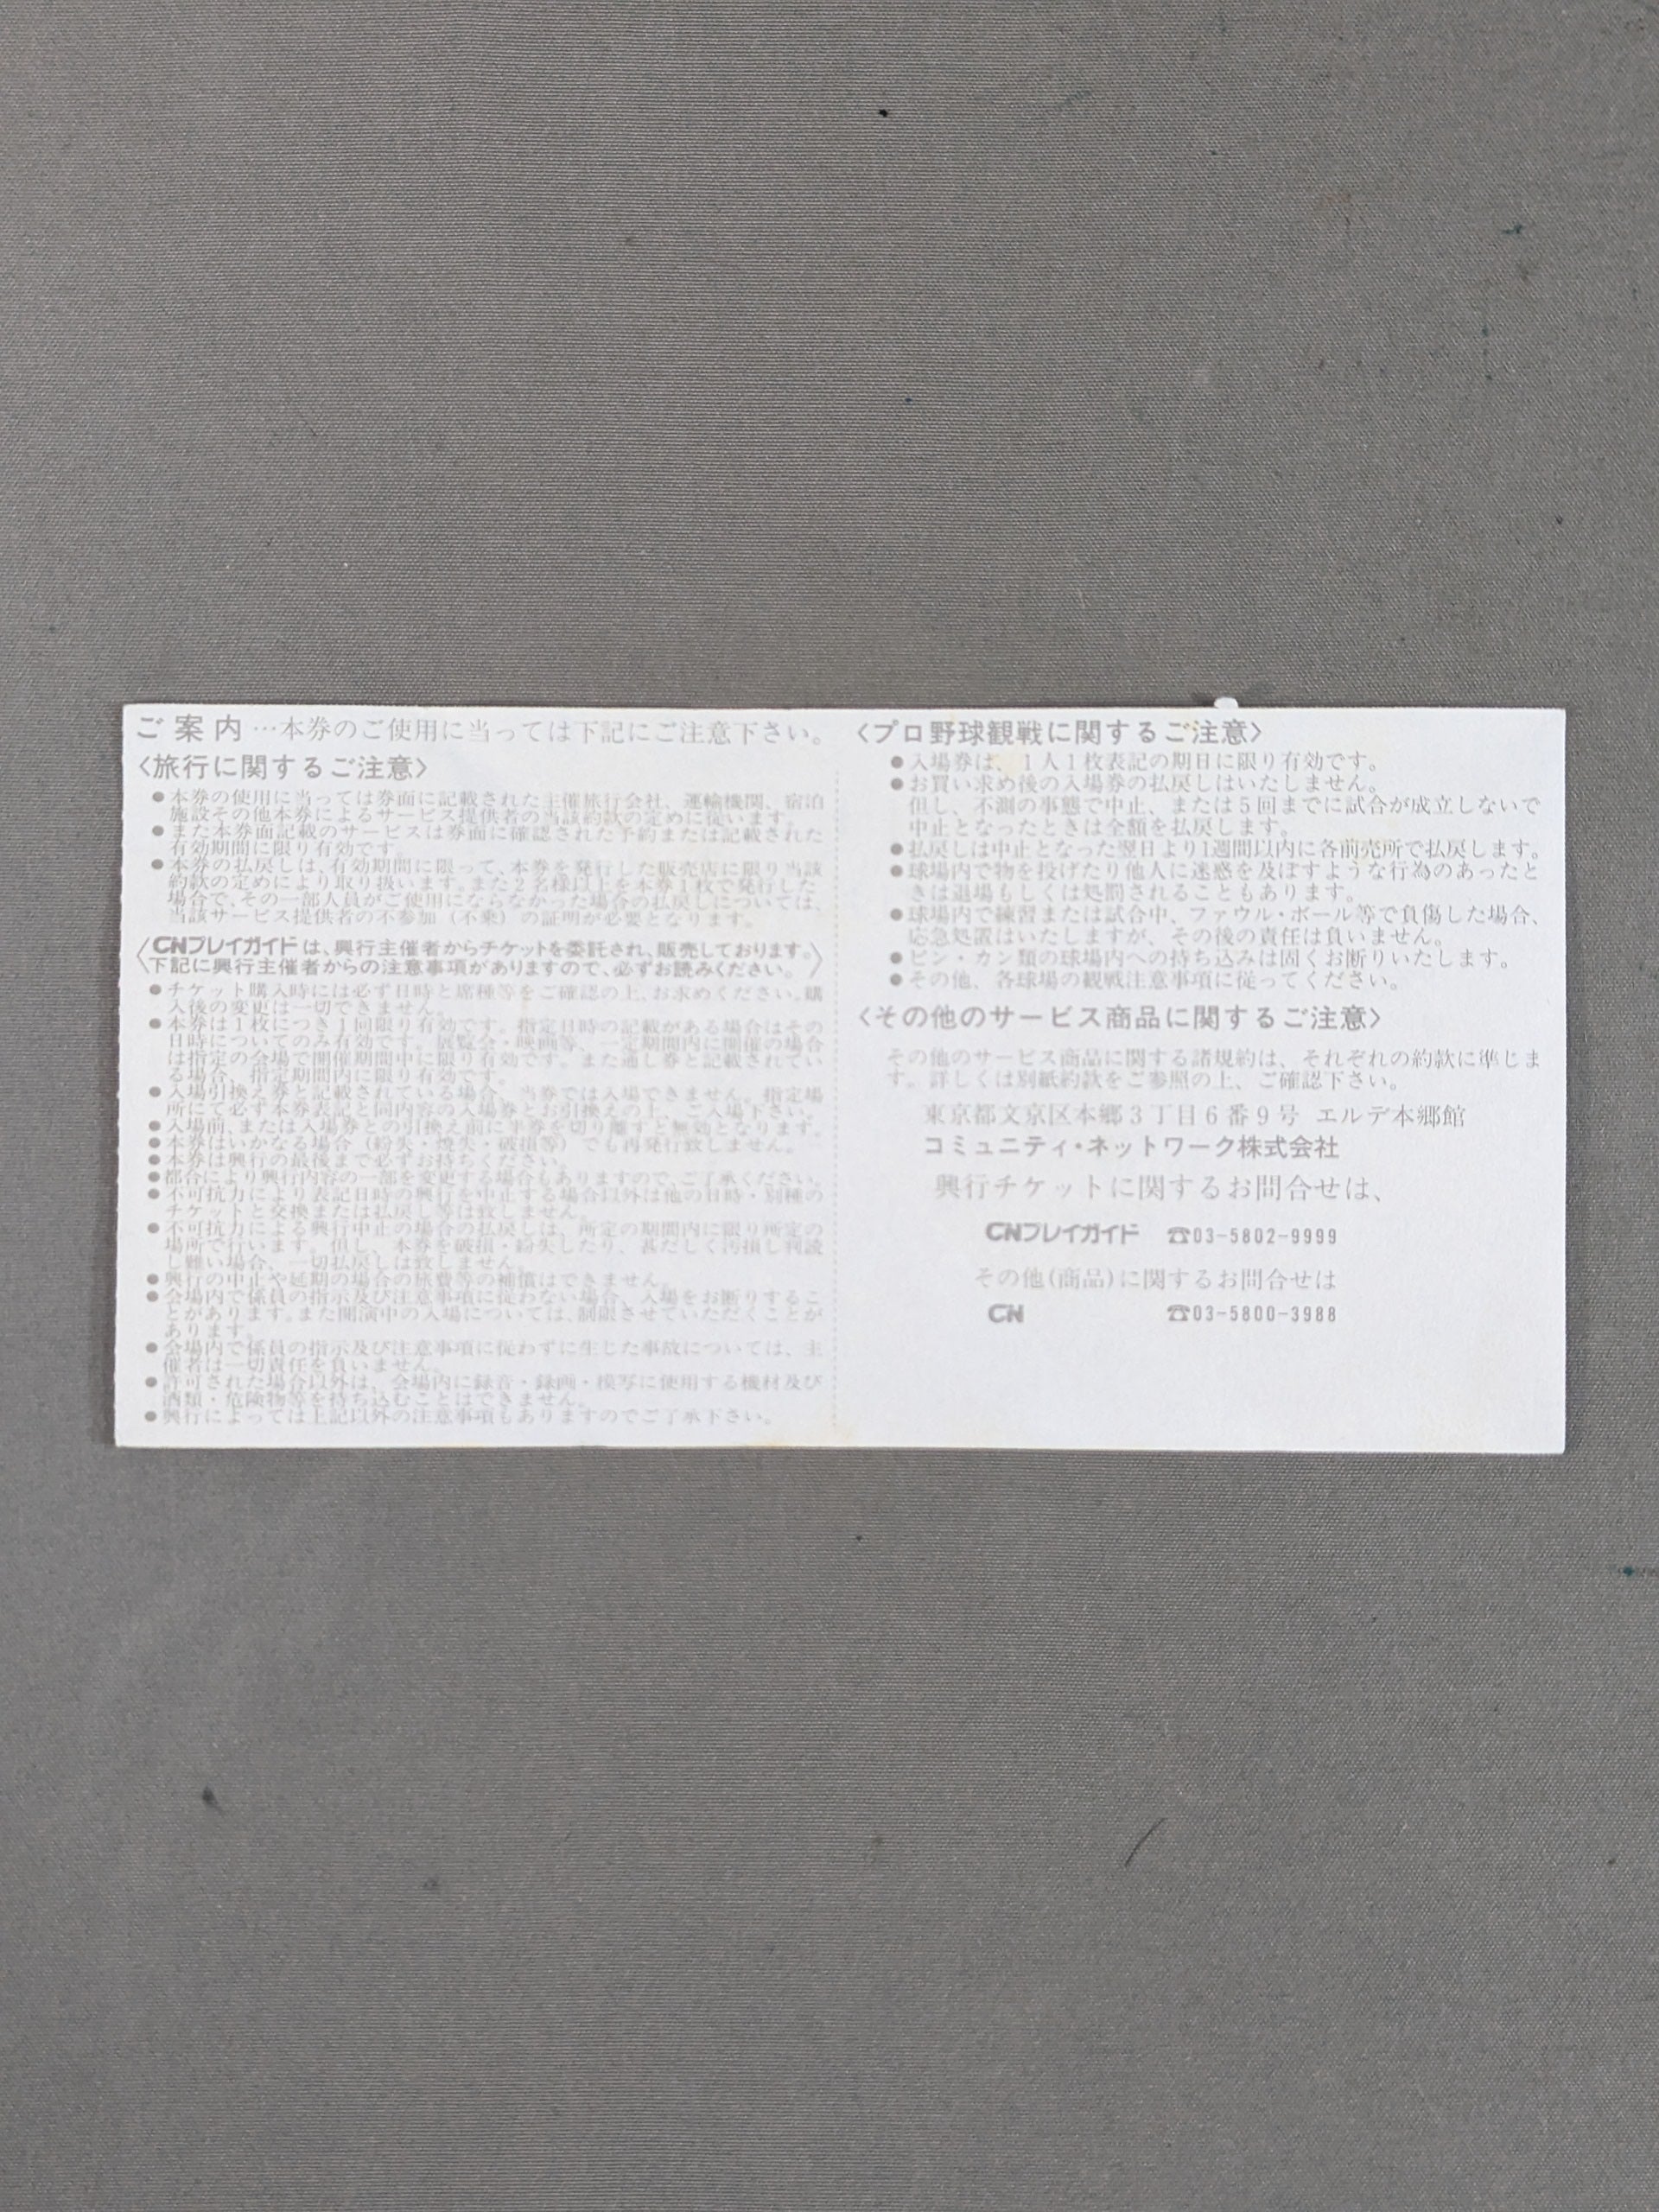 ご案内…本券のご使用に当っては下記にご注意下さい。
〈旅行に関するご注意〉
●本券の使用に当っては券面に記載された主催旅行会社、運輸機関、宿泊
施設その他本券によるサービス提供者の当該約款の定めに従います。
●また本券面記載のサービスは券面に確認された予約または記載された
有効期間に限り有効です。
●本券の払戻しは、有効期間に限って、本券を発行した販売店に限り当該
約款の定めにより取り扱います。また2名様以上を本券1枚で発行した
場合で、その一部人員がご使用にならなかった場合の払戻しについては、
当該サービス提供者の不参加（不乗）の証明が必要となります。
〈CNプレイガイドは、興行主催者からチケットを委託され、販売しております。
下記に興行主催者からの注意事項がありますので、必ずお読みください。〉
●チケット購入時には必ず日時と席種等をご確認の上、お求めください。購
入後の変更は一切できません。
●本券は1枚につき1回限り有効です。指定日時の記載がある場合はその
日時についてのみ有効です。展覧会・映画等、一定期間内に開催の場合
は指定の会場で開催期間中に限り有効です。また通し券と記載されてい
る場合、指定期間内に限り有効です。
●入場引換え券と記載されている場合、当券では入場できません。指定場
所にて必ず本券表記と同内容の入場券とお引換えの上、ご入場下さい。
●入場前、または入場券との引換え前に半券を切り離すと無効となります。
●本券はいかなる場合（紛失・焼失・破損等）でも再発行致しません。
●本券は興行の最後まで必ずお持ちください。
●都合により興行内容の一部を変更する場合もありますので、ご了承ください。
●不可抗力により表記日時の興行を中止する場合以外は他の日時・別種の
チケットと交換または払戻し等は致しません。
●不可抗力による興行中止の場合の払戻しは、所定の期間内に限り所定の
場所で行います。但し、本券を破損・紛失したり、甚だしく汚損し判読
し難い場合、一切払戻しは致しません。
●興行の中止や延期の場合の旅費等の補償はできません。
●会場内で係員の指示及び注意事項に従わない場合、入場をお断りするこ
とがあります。また開演中の入場については、制限させていただくことが
あります。
●会場内で係員の指示及び注意事項に従わずに生じた事故については、主
催者は一切責任を負いません。
●許可された場合以外は、会場内に録音・録画・模写に使用する機材及び
酒類・危険物等を持ち込むことはできません。
●興行によっては上記以外の注意事項もありますのでご了承下さい。
〈プロ野球観戦に関するご注意〉
●入場券は、1人1枚表記の期日に限り有効です。
●お買い求め後の入場券の払戻しはいたしません。
但し、不測の事態で中止、または5回までに試合が成立しないで
中止となったときは全額を払戻します。
●払戻しは中止となった翌日より1週間以内に各前売所で払戻します。
●球場内で物を投げたり他人に迷惑を及ぼすような行為のあったと
きは退場もしくは処罰されることもあります。
●球場内で練習または試合中、ファウル・ボール等で負傷した場合、
応急処置はいたしますが、その後の責任は負いません。
●ビン・カン類の球場内への持ち込みは固くお断りいたします。
●その他、各球場の観戦注意事項に従ってください。
〈その他のサービス商品に関するご注意〉
その他のサービス商品に関する諸規約は、それぞれの約款に準じま
す。詳しくは別紙約款をご参照の上、ご確認下さい。
東京都文京区本郷3丁目6番9号 エルデ本郷館
コミュニティ・ネットワーク株式会社
興行チケットに関するお問合せは、
CNプレイガイド ☎03-5802-9999
その他(商品)に関するお問合せは
CN ☎03-5800-3988